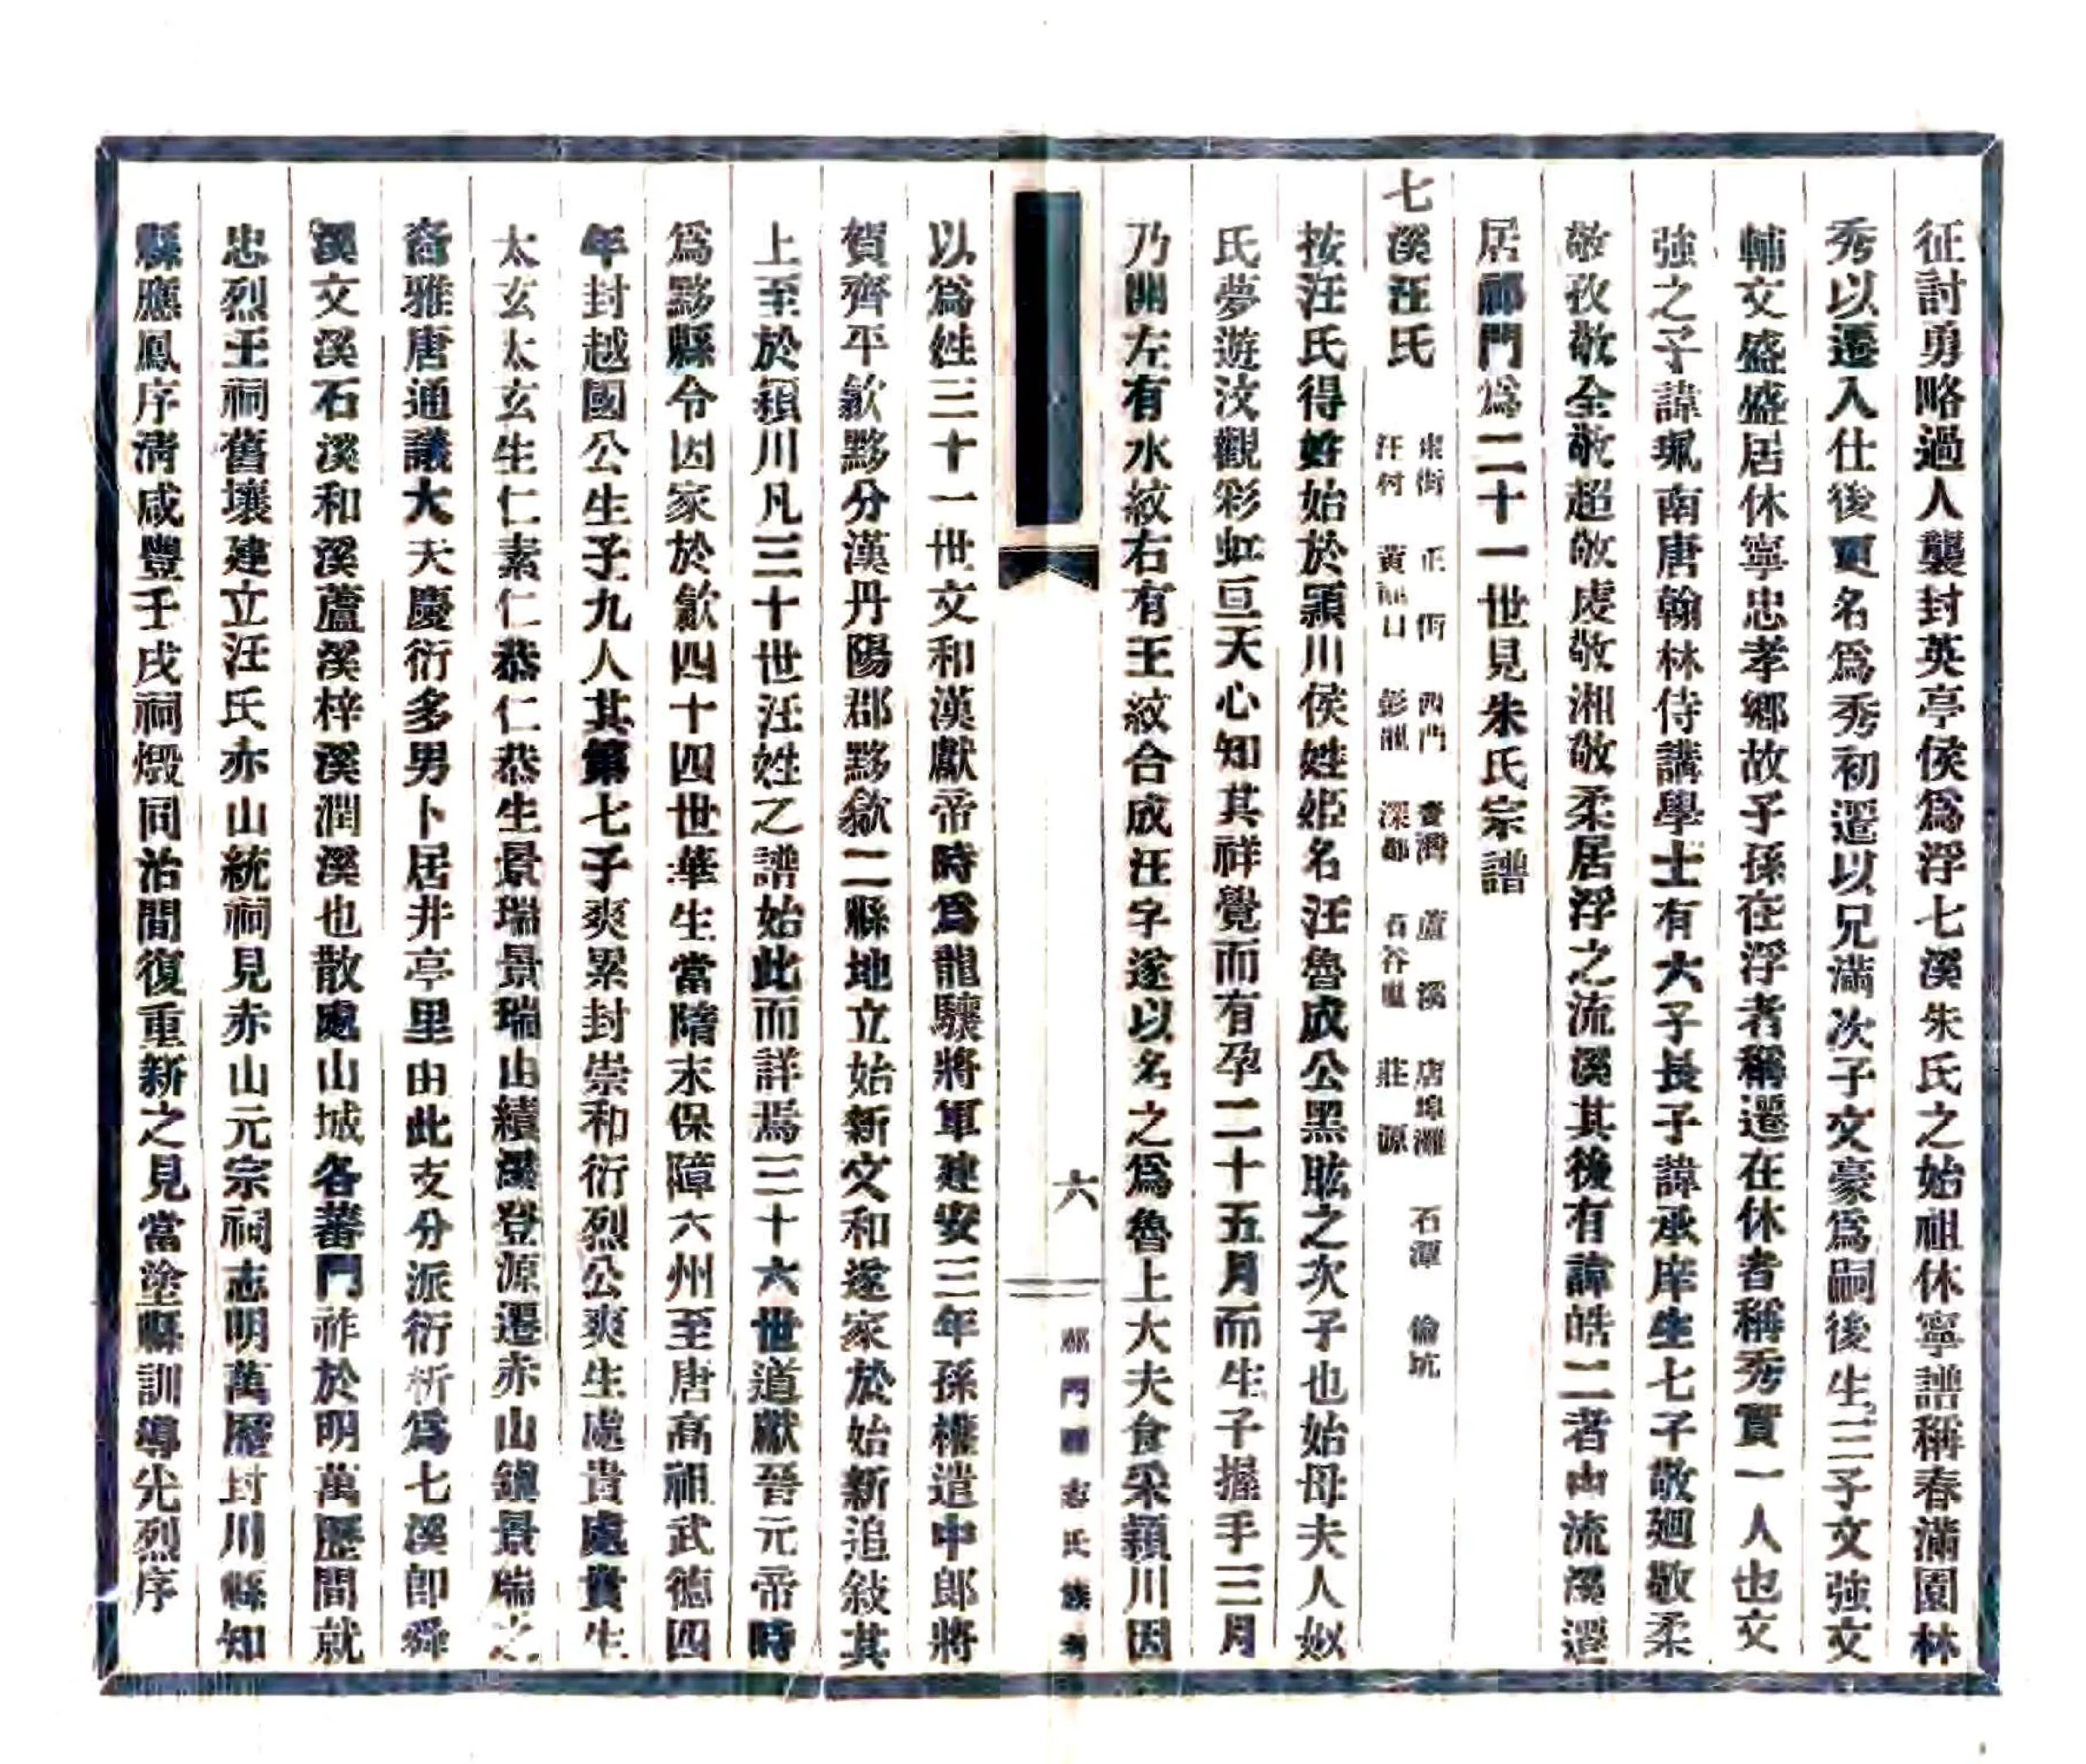 征討勇略過人襲封英亭侯爲浮七溪朱氏之始祖休寧譜稱春滿園林
秀以遷入仕後更名爲秀初遷以兄滿次子文豪爲嗣後生三子文強文
輔文盛盛居休寧忠孝鄉故子孫在浮者稱遷在休者稱秀實一人也文
強之子諱珮南唐翰林侍講學士有六子長子諱承庠生七子敬廻敬柔
敬孜敬全敬超敬虔敬湘敬柔居浮之流溪其後有諱皓二者由流溪遷
居祁門爲二十一世見朱氏宗譜
七溪汪氏
東街 正街 西門 查灣 蘆溪 店埠灘 石潭 倫坑
汪村 黃 口 彭龍 深都 石谷 莊源
按汪氏得姓始於潁川侯姓姬名汪魯成公黑肱之次子也始母夫人姒
氏夢遊汶觀彩虹亘天心知其祥覺而有孕二十五月而生子握手三月
乃開左有水紋右有王紋合成汪字遂以名之爲魯上大夫食采潁川因
六
祁門縣志氏族考
以爲姓三十一世文和漢獻帝時爲龍驤將軍建安三年孫權遣中郎將
賀齊平歙黟分漢丹陽郡黟歙二縣地立始新文和遂家於始新追敍其
上至於潁川凡三十世汪姓之譜始此而詳焉三十六世道獻晉元帝時
爲黟縣令因家於歙四十四世華生當隋末保障六州至唐高祖武德四
年封越國公生子九人其第七子爽累封崇和衍烈公爽生處貴處貴生
太玄太玄生仁素仁恭仁恭生景瑞景瑞由績溪登源遷赤山鎮景瑞之
裔雅唐通議大夫慶衍多男卜居井亭里由此支分派衍析爲七溪卽舜
溪文溪石溪和溪蘆溪梓溪潤溪也散處山城各蕃門祚於明萬歷間就
忠烈王祠舊壤建立汪氏赤山統祠見赤山元宗祠志明萬歷封川縣知
縣應鳳序淸咸豐壬戌祠燬同治間復重新之見當塗縣訓導光烈序